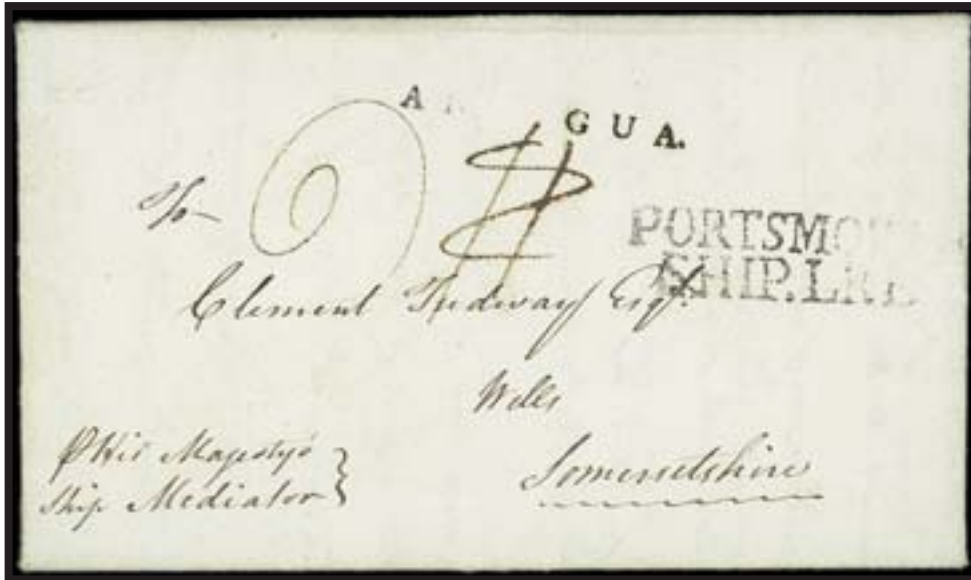 A GUA.
To
PORTSMO
SHIP.LRE
Clement Tudway Esqr.
Wells
Somersetshire
P His Majesty's
Ship Mediator